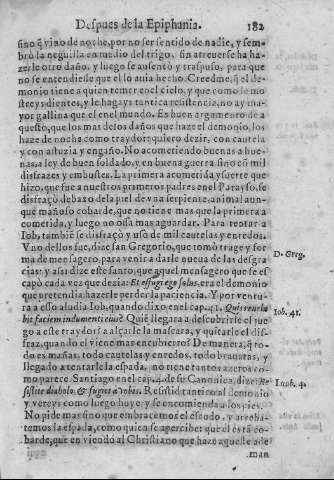 Despues de la Epiphania. 182
sino q̃ vino de noche, por no ser sentido de nadie, y sem-
bró la neguilla en medio del trigo, sin atreuerse ha ha-
zerle otro daño, y luego se ausentó y traspuso, para que
no se entendiesse que el lo auia hecho. Creedme, q̃ el de-
monio tiene a quien temer en el cielo, y que como le mo
streys dientes, y le hagays tantica resistencia, no ay ma-
yor gallina que el en el mundo. Es buen argumento de a
questo, que los mas de los daños que haze el demonio, los
haze de noche como traydor: quiero dezir, con cautela
y con astuzia y engaño. No acometiendo buenas a bue-
nas, a ley de buen soldado, y en buena guerra sino cō mil
disfrazes y embustes. La primera acometida, y suerte que
hizo, que fue a nuestros primeros padres en el Parayso, se
disfraçò debaxo de la piel de vna serpiente, animal aun-
que mañoso cobarde, que no tiene mas que la primera a
cometida, y luego no osa mas aguardar. Para tentar a
Iob, tambiē se disfraçò y vsò de mil cautelas y enredos.
Vno dellos fue, dize san Gregorio, que tomò trage y for
ma de mensagero, para venir a darle nueua de las desgra
cias: y assi dize este santo, que aquel mensagero que se es
capò cada vez que dezia: Et effugi ego solus, era el demonio
que pretendia hazerle perder la paciencia. Y por ventu-
ra a esso aludia Iob, quando dixo en el cap. 41. Quis reuela
bit faciem indumenti eius? Quiē llegara a descubrirle el jue
go a este traydor? a alçarle la mascara, y quitarle el dis-
fraz, quando el viene mas encubierto? De manera, q̃ to-
do es mañas, todo cautelas y enredos, todo brauatas, y
llegado a tentarle la espada, no tiene tantos azeros co-
mo parece. Santiago en el cap. 4. de su Canonica, dize: Re
sistite diabolo, & fugiet a vobis. Resistid tantico al demonio
y vereys como luego huye y se encomienda a los pies.
No pide mas sino que embracemos el escudo, y arreba-
temos la espada, como quien se apercibe: que el està co-
barde, que en viendo al Christiano que haze aquel ade
man
D. Greg.
Iob. 41.
Iacob. 4.